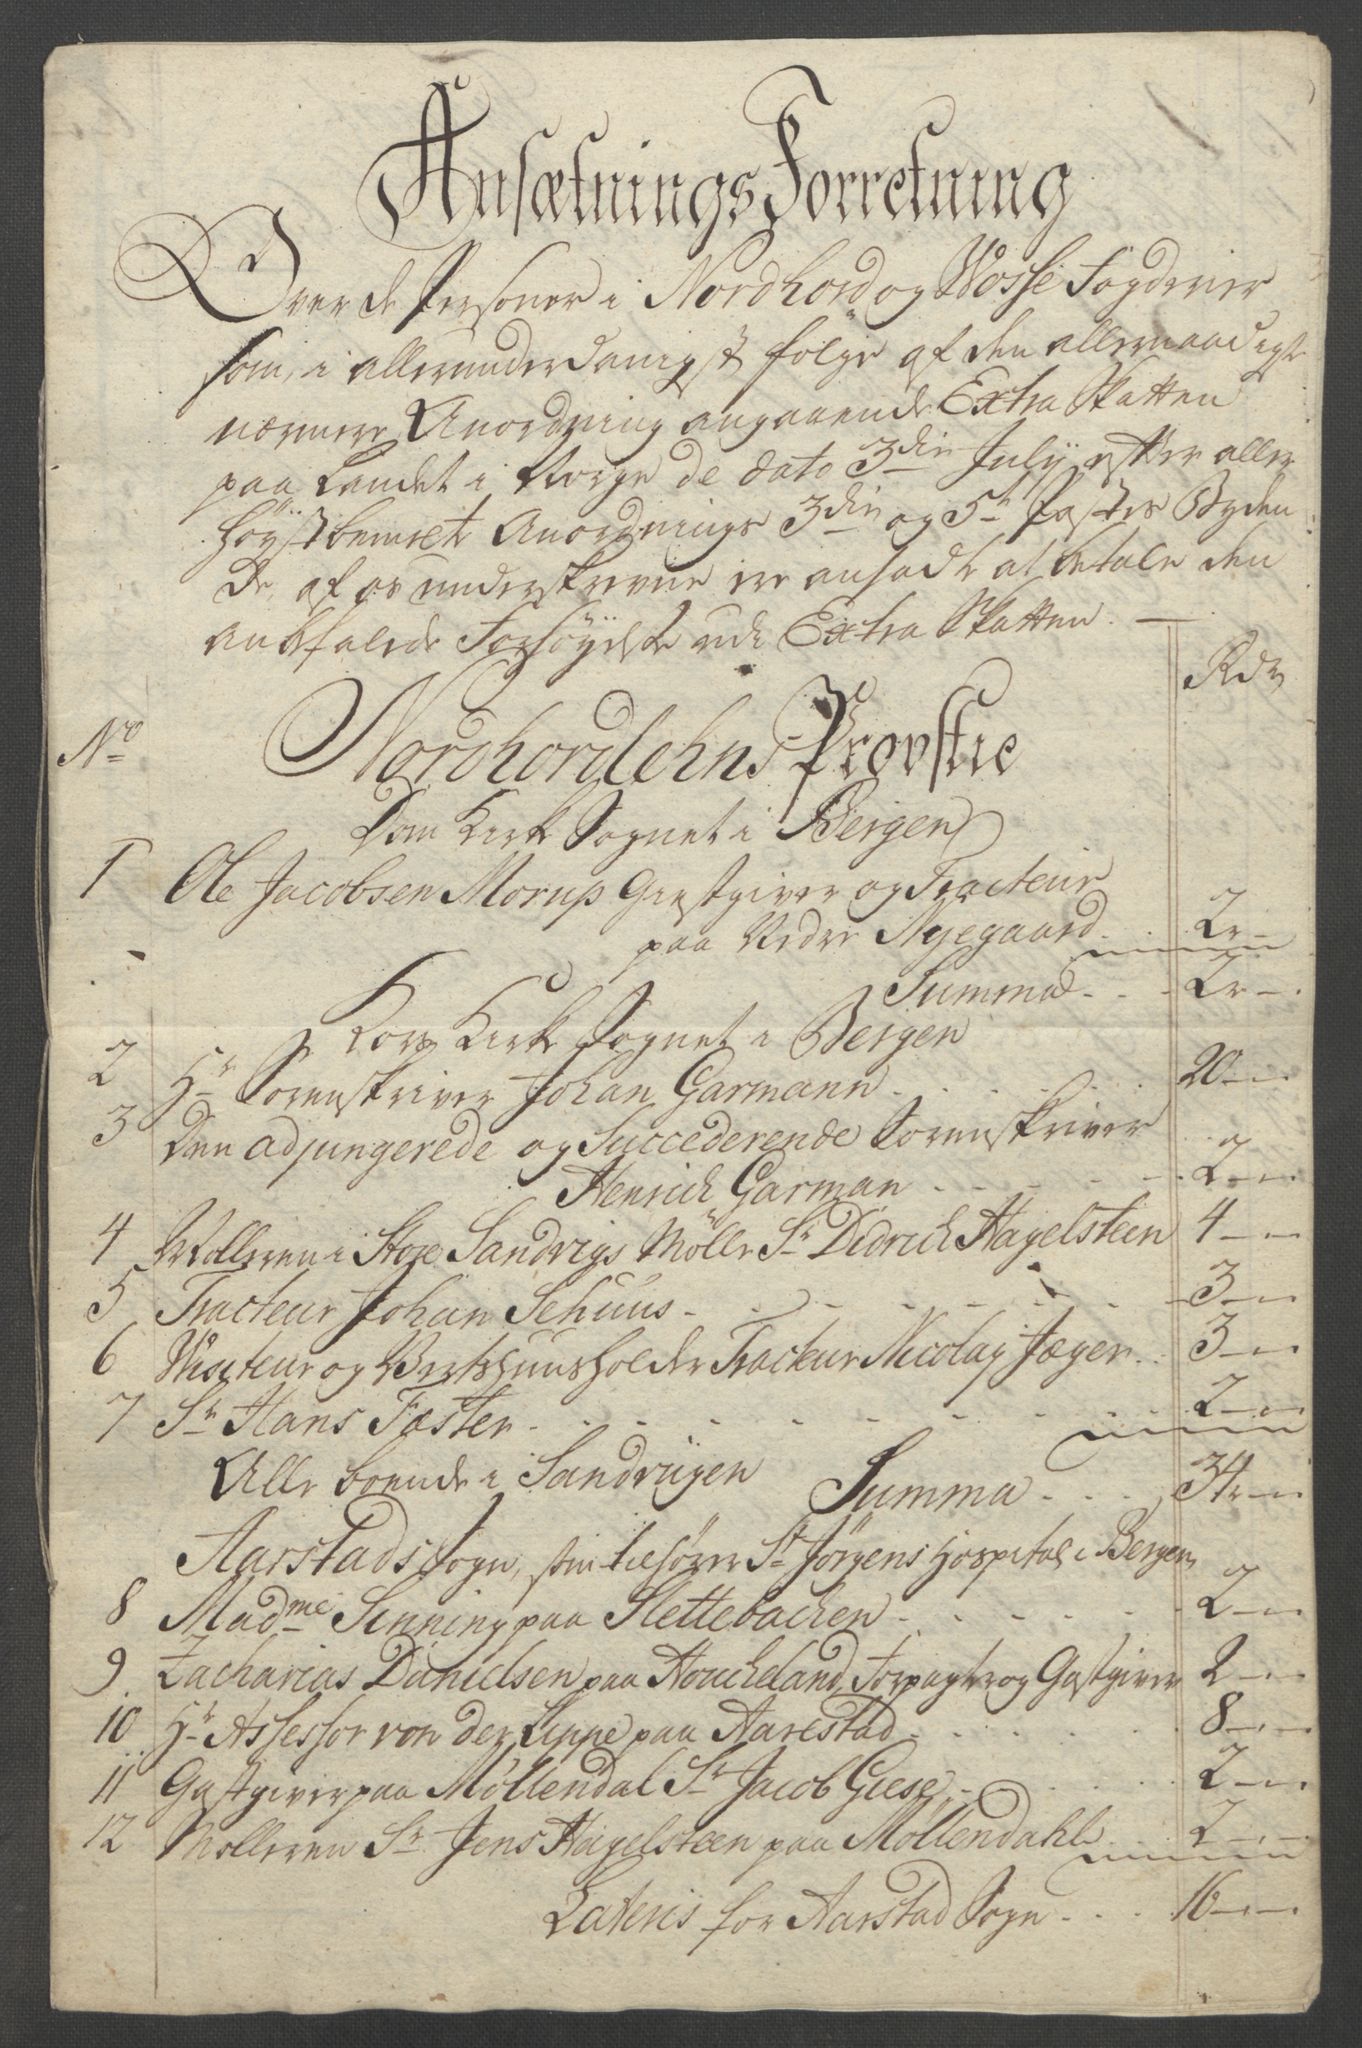 Ansætnings Forretning
Over de Personer i Nordhord og Wosse Fogderier
som, i allerunderdanigst følge af den allernaadigste
nærmere Anordning angaaende Extra Skatten
paa Landet i Norge de dato 3die July, efter aller
høystbemelte Anordnings 3die og 5te Postes Bydende
De, af os underskrevne ere ansadt at betale den
anbefalede Forhøyelse udi Extra Skatten. —
Rdr
No Nordhordlehns Provstie
Dom Kirke Sognet i Bergen
1 Ole Jacobsen Morup Giestgiver og Tracteur
paa Nedre Nyegaard . . 2 „ —
Summa . . . 2 „ —
Kors Kirke Sognet i Bergen
2 Hr Sorenskriver Johan Garmann . . . . . 20 „ —
3 Den adjungerede og Succederende Sorenskriver
Henrich Garman . . . . . 2 „ —
4 Mølleren i Store Sandvigs Mølle Sr Didrich Hagelsteen 4 „ —
5 Tracteur Johan Schuus . . . . . . . 3 „ —
6 Visiteur og Vertshuusholder Tracteur Nicolay Jæger . . 3 „ —
7 Sr Hans Faster . . . . . . . . 2 „ —
Alle boende i Sandvigen Summa . . . 34 „ —
Aarstads Sogn, som tilhører St Jørgens Hospital i Bergen
8 Madme Sinning paa Slettebachen . . . . . 2 „ —
9 Zacharias Danielsen paa Houcheland, Forpagter og Gastgiver 2 „ —
10 Hr Assessor von der Lippe paa Aarestad . . . . . 8 „ —
11 Gastgiver paa Møllendal Sr Jacob Giese . . . . . 2 „ —
12 Mølleren Sr Jens Hagelsteen paa Møllendahl . . 2 „ —
Lateris for Aarstad Sogn . . . 16 „ —